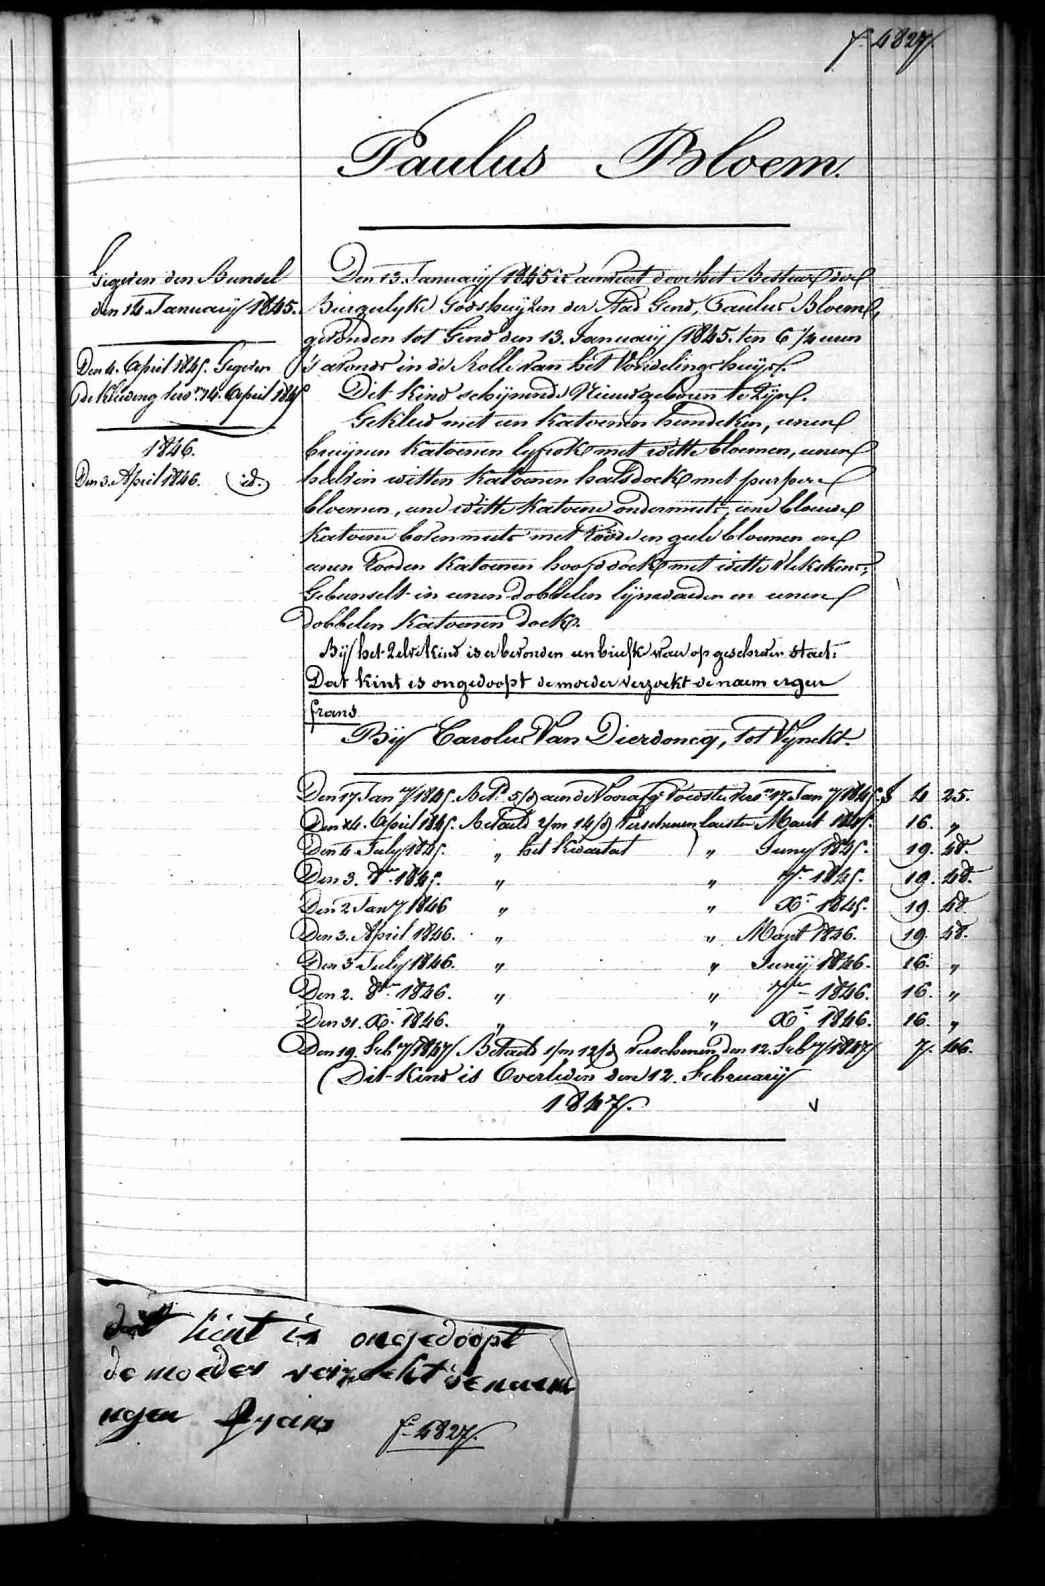 f. 4827.
Paulus Bloem.
Gegeven den Bunsel
den 14 January 1845.
Den 4. April 1845. Gegeven
de Kleeding vers. 14. April 1845
1846.
Den 3. April 1846. id.
Den 13. January 1845 is aenveert door het Bestuer der
Burgerlyke Godshuyzen der Stad Gend, Paulus Bloem,
gevonden tot Gend den 13. January 1845. ten 6 ½ uren
's avonds in de Rolle van het Vondelingshuys.
Dit Kind schynende Nieuwgeboren te Zyn.
Gekleed met een katoenen hemdeken, eenen
bruynen katoenen lyfrok met witte bloemen, eenen
halven witten katoenen halsdoek met purpere
bloemen, eene witte katoene ondermuts, eene blauwe
katoene bovenmuts met Roode en geele bloemen en
eenen Rooden katoenen hoofddoek met witte vlekskens,
Gebunselt in eenen dobbelen lynwaeden en eenen
dobbelen katoenen doek.
By het zelve kind is er bevonden een briefke waer op geschreven staet:
Dat kint is ongedoopt de moeder verzoekt de naem egen
frans
By Carolus Van Dierdoncq, tot Vynckt.
Den 17 Jan.y 1845. Bet.d 5/d aen de Voorafg. Voedster vers. 17. Jan.y 1845. f 4 25.
Den 14. April 1845. Betaeld 2/m 14/d Verschenen laesten Maert 1845. 16. „
Den 4. July 1845. „ het Kwartael „ Juny 1845. 19. 48.
Den 3. 8.re 1845. „ „ 7.re 1845. 19. 48.
Den 2 Jan.y 1846 „ „ X.re 1845. 19. 48
Den 3. April 1846. „ „ Maert 1846. 19. 48.
Den 3 July 1846. „ „ Juny 1846. 16. „
Den 2. 8.re 1846. „ „ 7.re 1846. 16. „
Den 31. X.re 1846. „ „ X.re 1846. 16. „
Den 19. Feb.y 1847 Betaeld 1/m 12/d verschenen den 12. Feb.y 1847 7. 46.
(Dit Kind is Overleden den 12. February
1847.
dat kint is ongedoopt
de moeder verzoekt de naem
egen frans
f. 4827.